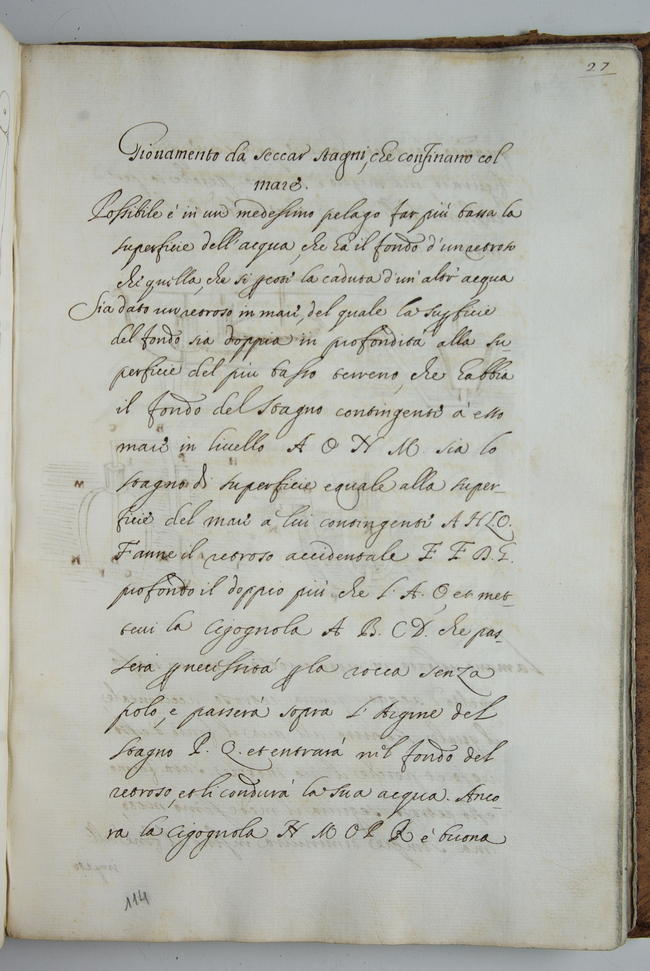 27
Giouamento da seccar stagni, che confinano col
mare.
Possibile è in un medesimo pelago far più bassa la
superficie dell'acqua, che ha il fondo d'un retroso
che quella, che si pcoti la caduta d'un altr' acqua
Sia dato un retroso in mare, del quale la supficie
del fondo sia doppia in profondità alla su-
perficie del piu basso terreno, che habbia
il fondo del stagno contingente à esso
mare in livello A O N M sia lo
stagno di superficie equale alla super-
ficie del mare a lui contingente A H L O.
Fanne il retroso accidentale E F B. E.
profondo il doppio più che l'A. O, et met-
teui la Cigognola A B. C D. che pas-
serà p necessità p la rocca senza
polo, e passerà sopra l'Argine del
stagno P. Q. et entrarà nel fondo del
retroso, et li condurà la sua acqua. Anco-
ra la Cigognola N M O P R è buona
114